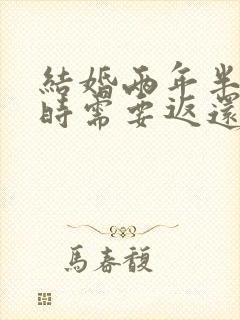 結婚兩年半
時需要返還
馬春馥